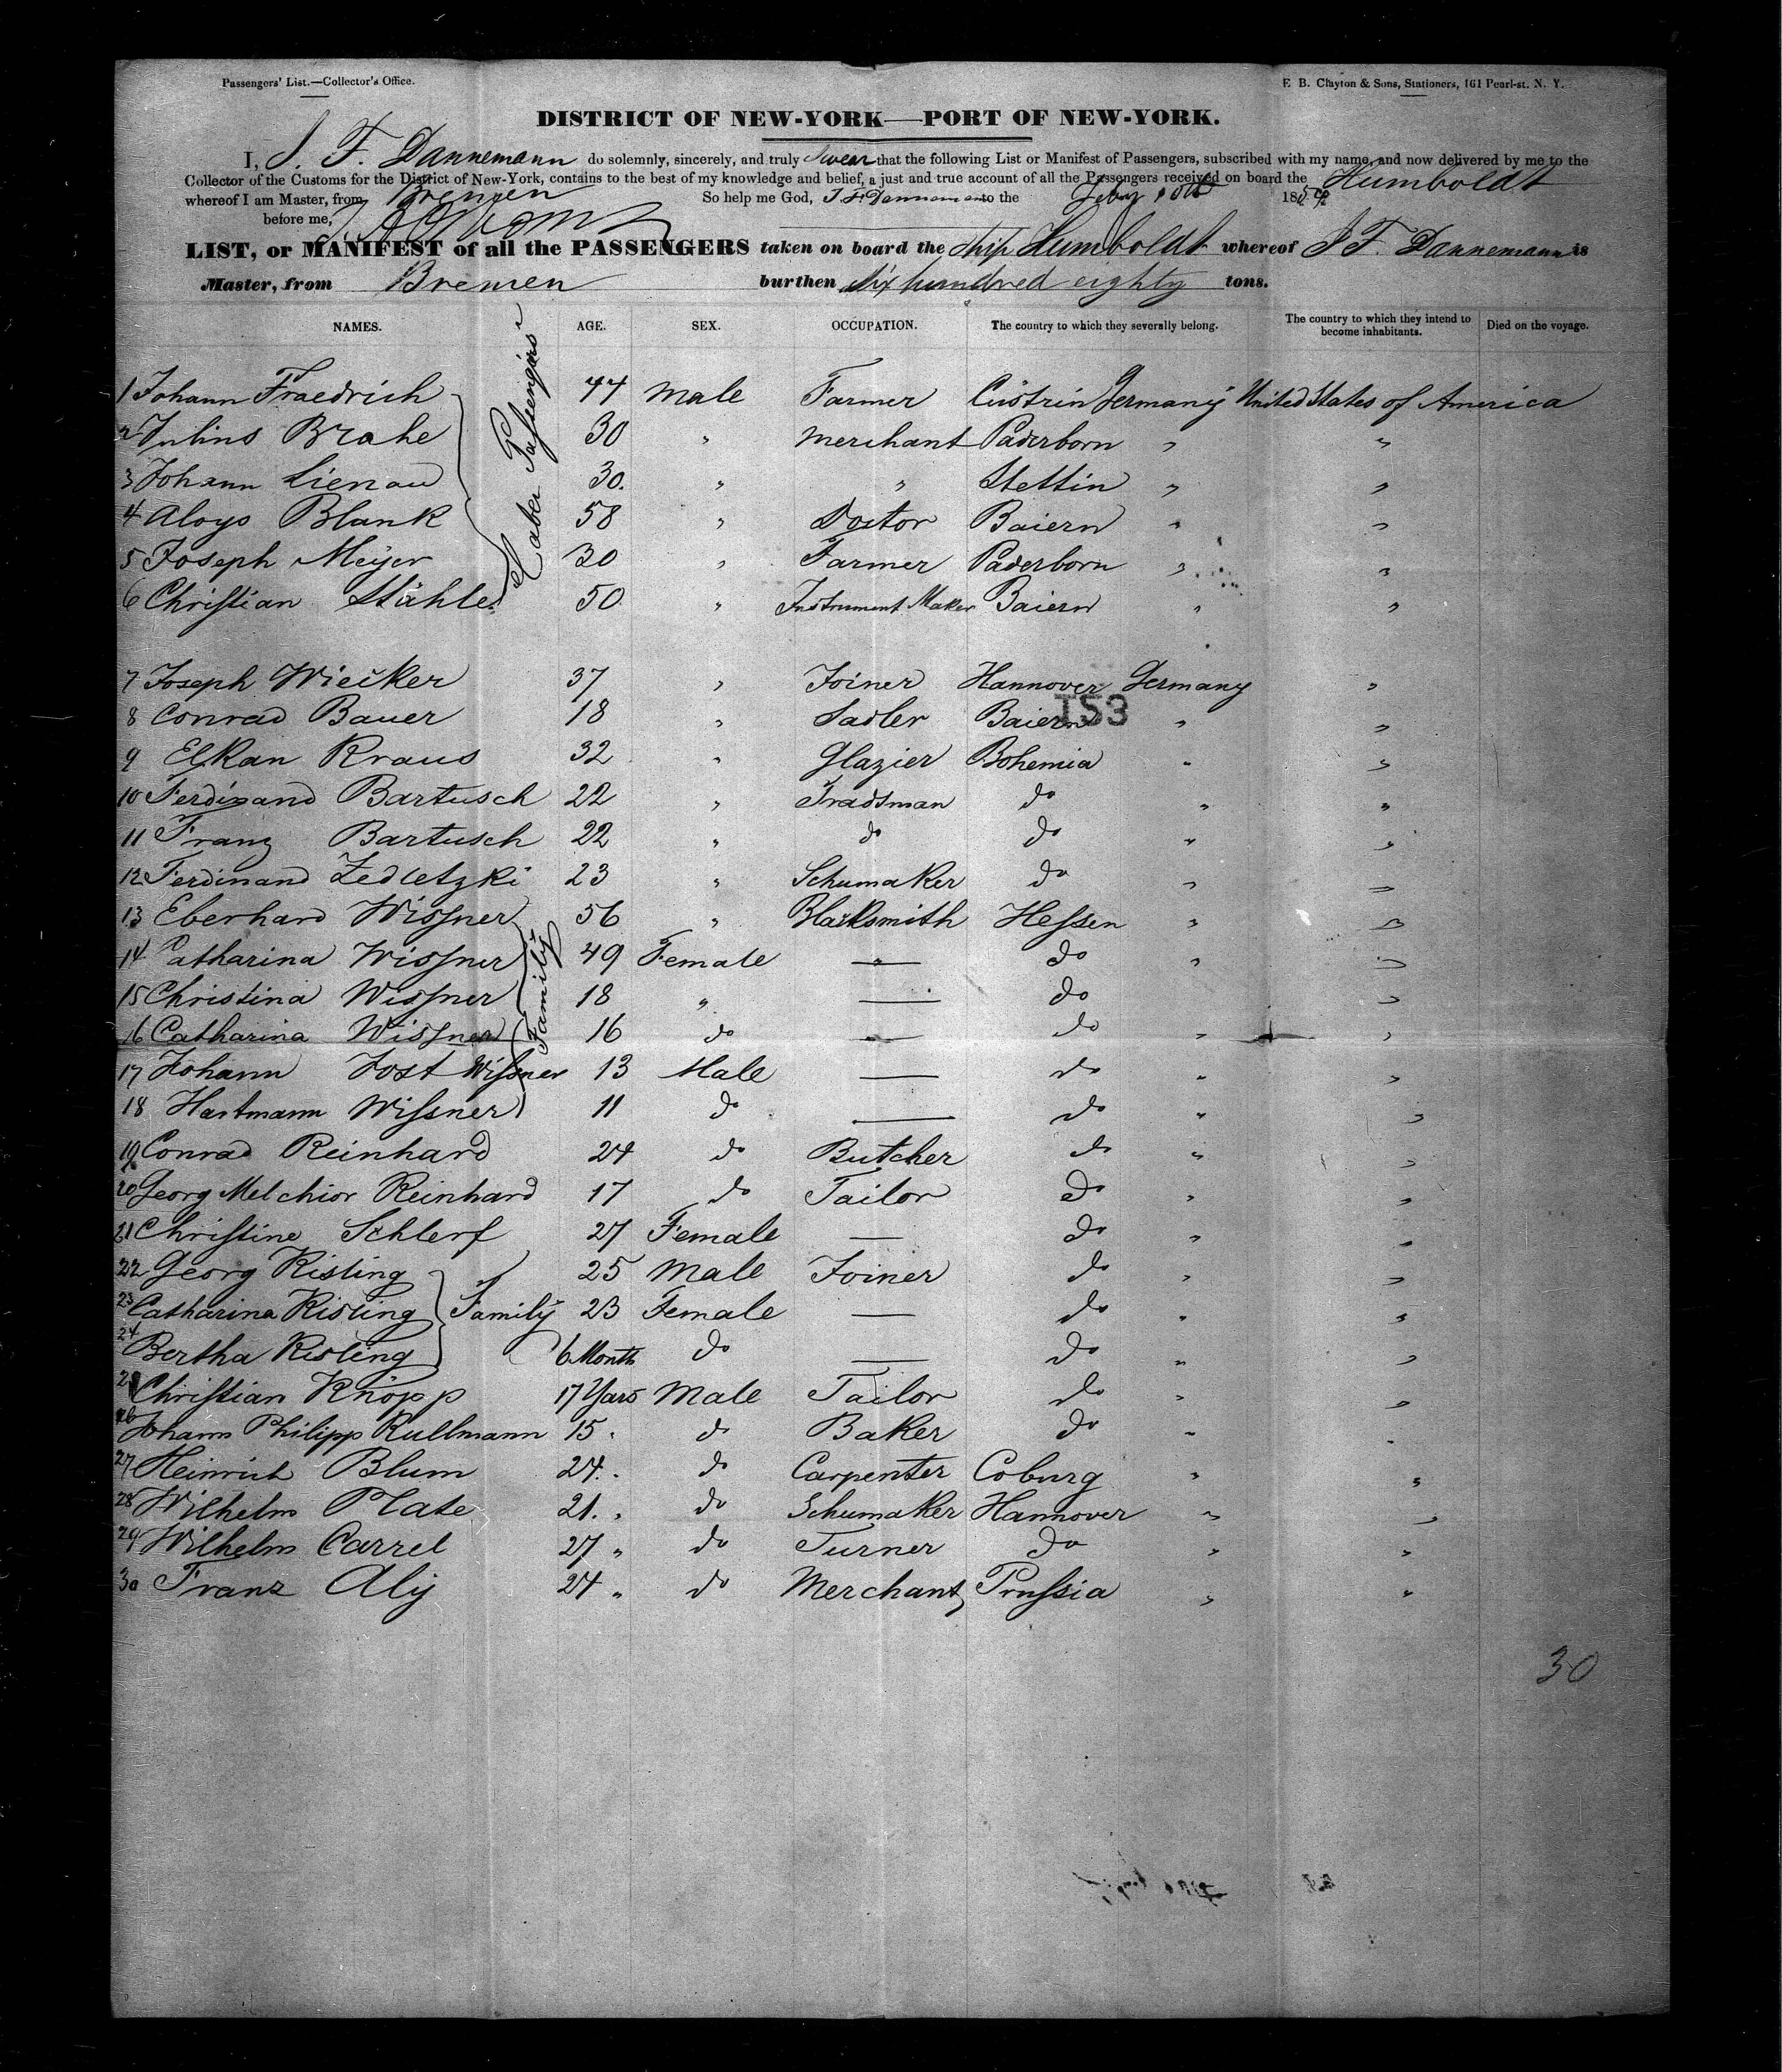 Passengers' List.—Collector's Office.
F. B. Clayton & Sons, Stationers, 161 Pearl-st. N. Y.
DISTRICT OF NEW-YORK—PORT OF NEW-YORK.
I, J. F. Dannemann do solemnly, sincerely, and truly swear that the following List or Manifest of Passengers, subscribed with my name, and now delivered by me to the
Collector of the Customs for the District of New-York, contains to the best of my knowledge and belief, a just and true account of all the Passengers received on board the Humboldt
whereof I am Master, from Bremen So help me God, J F Dannemann to the Feby 10th 185
before me,
LIST, or MANIFEST of all the PASSENGERS taken on board the ship Humboldt whereof J F. Dannemann is
Master, from Bremen burthen Six hundred eighty tons.
NAMES. AGE. SEX. OCCUPATION. The country to which they severally belong. The country to which they intend to become inhabitants. Died on the voyage.
Passengers
1 Johann Fraedrich 44 Male Farmer Cüstrin Germany United States of America
2 Julius Brake 30 " Merchant Paderborn " "
3 Johann Lienau 30. " " Stettin " "
4 Aloys Blank 58 " Doctor Baiern " "
5 Joseph Meyer 30 " Farmer Paderborn " "
6 Christian Stähle 50 " Instrument Maker Baiern " "
7 Joseph Wiecker 37 " Joiner Hannover Germany "
153
8 Conrad Bauer 18 " Sadler Baiern " "
9 Elkan Kraus 32 " Glazier Bohemia " "
10 Ferdinand Bartusch 22 " Tradsman do " "
11 Franz Bartusch 22 " do do " "
12 Ferdinand Zedletzki 23 " Schumaker do " "
13 Eberhard Wissner 56 " Blacksmith Hessen " "
Family
14 Catharina Wissner 49 Female — do " "
15 Christina Wissner 18 " — do "
16 Catharina Wissner 16 do — do " "
17 Johann Jost Wissner 13 Male — do " "
18 Hartmann Wissner 11 do — do " "
19 Conrad Reinhard 24 do Butcher do " "
20 Georg Melchior Reinhard 17 do Tailor do " "
21 Christine Schlerf 27 Female — do " "
22 Georg Risling 25 Male Joiner do " "
23 Catharina Risling Family 23 Female — do " "
24 Bertha Risling 6 Month do — do " "
25 Christian Knöpp 17 Years Male Tailor do " "
26 Johann Philipp Rullmann 15 " do Baker do " "
27 Heinrich Blum 24 " do Carpenter Coburg " "
28 Wilhelm Plate 21 " do Schumaker Hannover " "
29 Wilhelm Carrel 27 " do Turner do " "
30 Franz Aly 24 " do Merchant Prussia " "
30